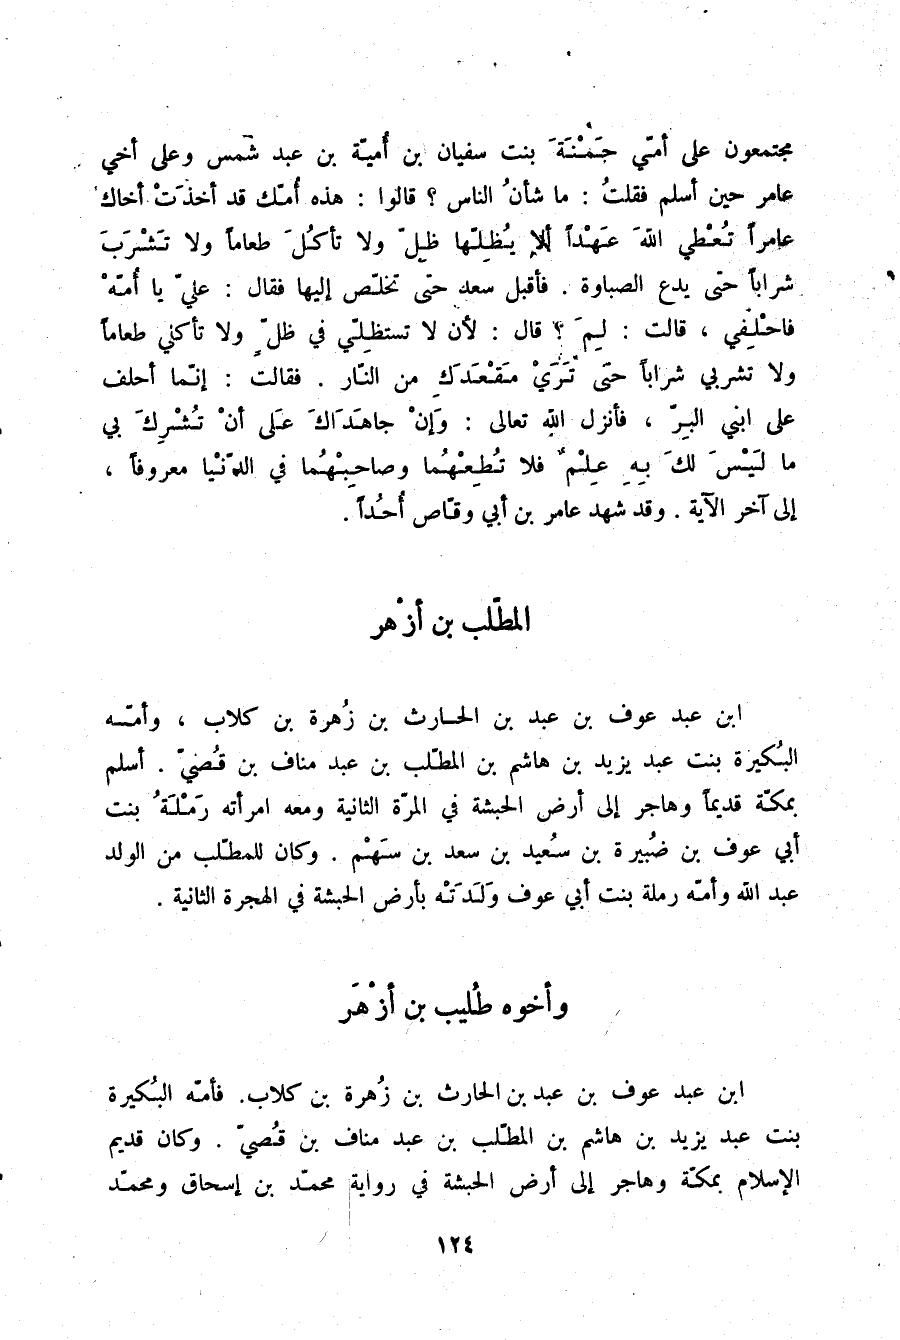 مجتمعون على أمّي حَمْنَةَ بنت سفيان بن أُميّة بن عبد شمس وعلى أخي
عامر حين أسلم فقلتُ : ما شأنُ الناس ؟ قالوا : هذه أُمّك قد أخذَتْ أخاك
عامراً تُعْطي اللهَ عَهْداً ألا يُظِلّها ظِلّ ولا تأكُلَ طعاماً ولا تَشْرَبَ
شراباً حتّى يدع الصباوة . فأقبل سعد حتّى تخلّص إليها فقال : عليّ يا أُمّهْ
فاحْلِفي ، قالت : لِمَ ؟ قال : لأن لا تستظلّي في ظلّ ولا تأكلي طعاماً
ولا تشربي شراباً حتّى تَرَيْ مَقْعَدَكِ من النّار . فقالت : إنّما أحلف
على ابني البِرّ ، فأنزل الله تعالى : وَإنْ جاهَدَاكَ عَلى أنْ تُشْرِكَ بي
ما لَيْسَ لكَ بِهِ عِلْمٌ فلا تُطِعْهُما وصاحِبْهُما في الدّنْيا معروفاً ،
إلى آخر الآية . وقد شهد عامر بن أبي وقّاص أُحُداً .
المطّلب بن أزْهر
ابن عبد عوف بن عبد بن الحارث بن زُهرة بن كلاب ، وأمّه
البُكيرة بنت عبد يزيد بن هاشم بن المطّلب بن عبد مناف بن قُصيّ . أسلم
بمكّة قديماً وهاجر إلى أرض الحبشة في المرّة الثانية ومعه امرأته رَمْلَةُ بنت
أبي عوف بن ضُبيرة بن سُعيد بن سعد بن سَهْم . وكان للمطّلب من الولد
عبد الله وأمّه رملة بنت أبي عوف وَلَدَتْه بأرض الحبشة في الهجرة الثانية .
وأخوه طُليب بن أزْهَر
ابن عبد عوف بن عبد بن الحارث بن زُهرة بن كلاب. فأمّه البُكيرة
بنت عبد يزيد بن هاشم بن المطّلب بن عبد مناف بن قُصيّ . وكان قديم
الإسلام بمكّة وهاجر إلى أرض الحبشة في رواية محمّد بن إسحاق ومحمّد
١٢٤